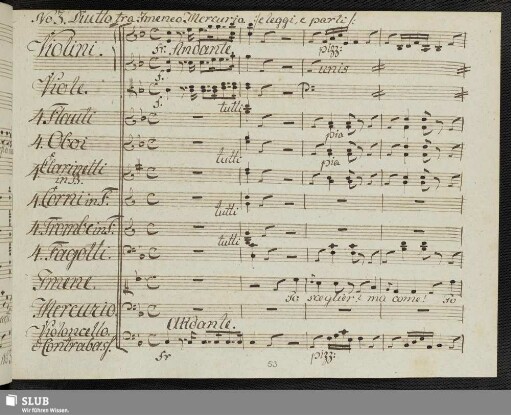 No 3. Duetto tra Imeneo, Mercurio
Violini.
fr. Andante
pizz:
unis
Viole.
f.
tutti
4. Flauti
pia
4. Oboi
tutti
pia
4 Clarinetti
in B.
tutti
4. Corni in F.
tutti
4. Trombe in F.
tutti
4. Fagotti.
Imene.
Io sceglier! ma come! Io
Mercurio.
Andante.
Violoncello
e Contrabass.
fr
pizz:
53
SLUB
Wir führen Wissen.